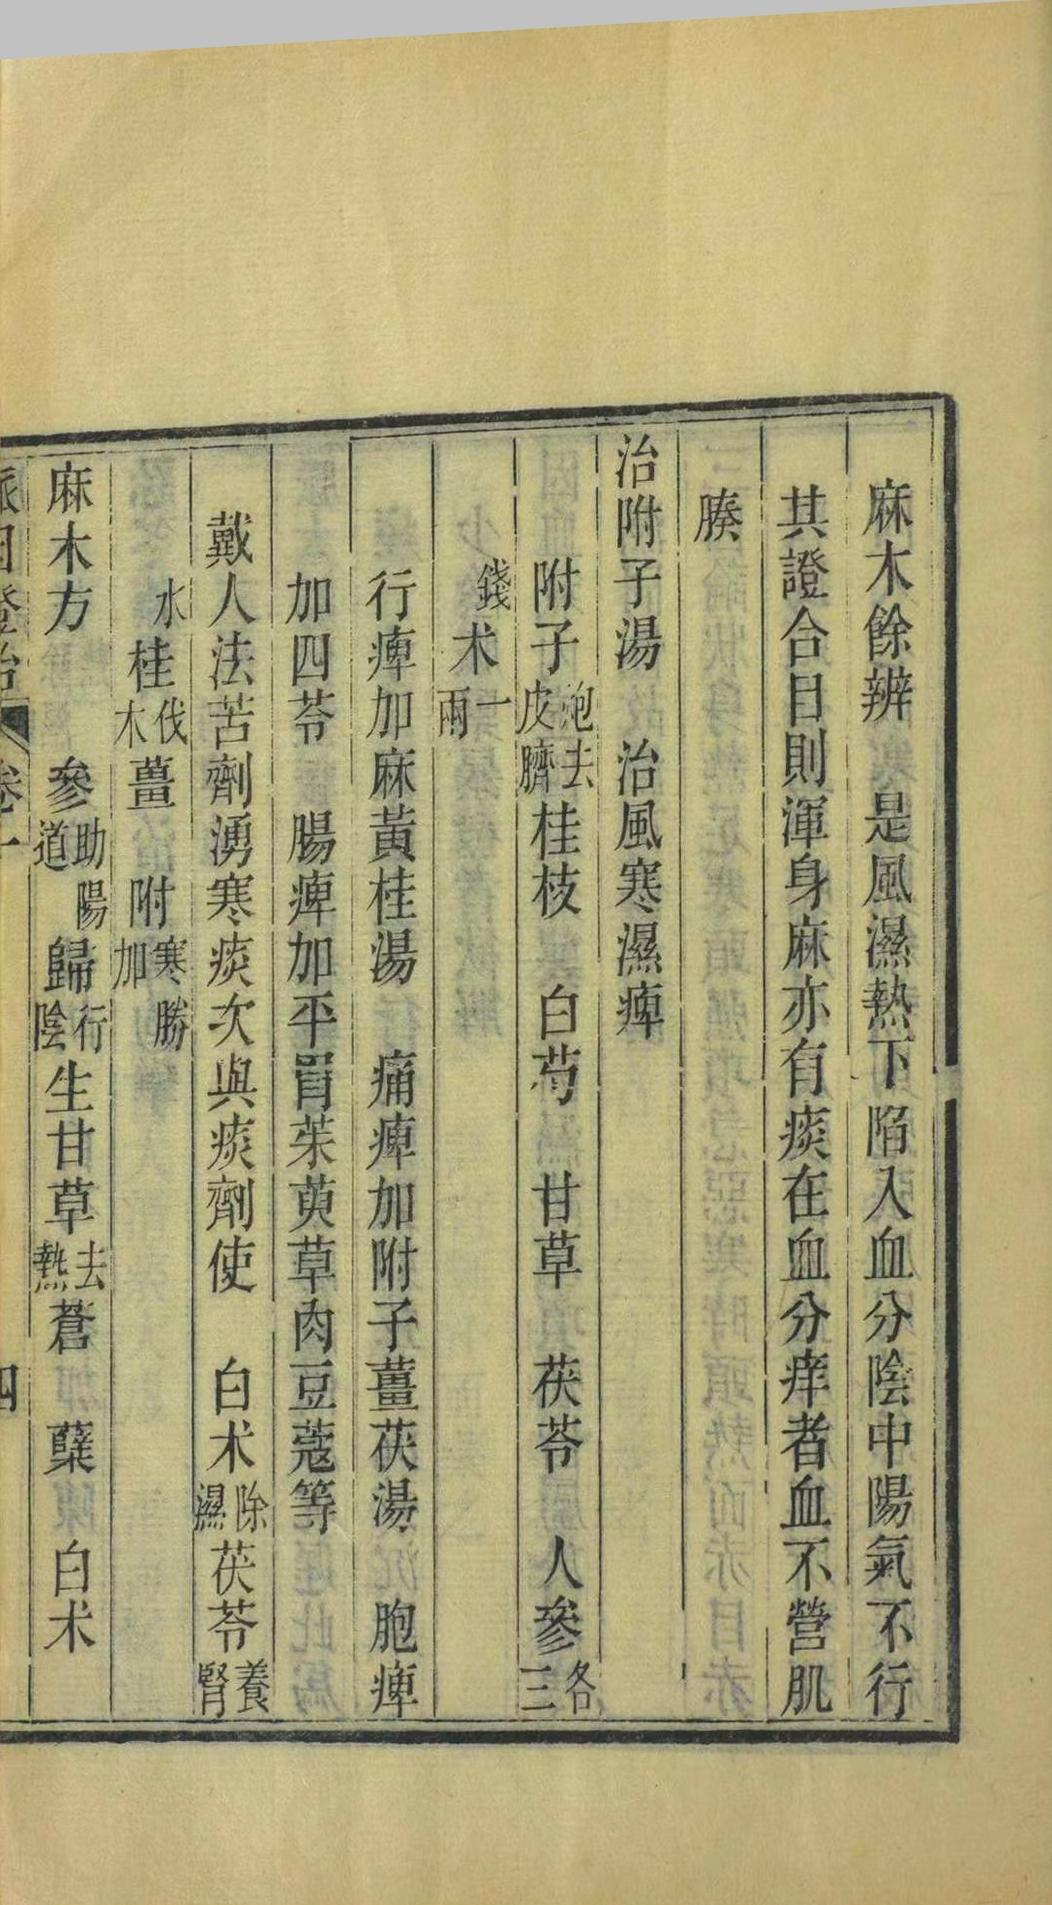 麻木餘辨　是風濕熱下陷入血分陰中陽氣不行
其證合目則渾身麻亦有痰在血分痒者血不營肌
腠
治附子湯　治風寒濕痺
附子炮去皮臍桂枝　白芍　甘草　茯苓　人參各三
錢术一兩
行痺加麻黃桂湯　痛痺加附子薑茯湯　胞痺
加四苓　腸痺加平胃茱萸草肉豆蔻等
戴人法苦劑湧寒痰次與痰劑使　白术除濕茯苓養腎
水桂伐木薑　附寒勝加
麻木方　參助陽道歸行陰生甘草去熱蒼　蘗　白术
脈因證治　卷一　四